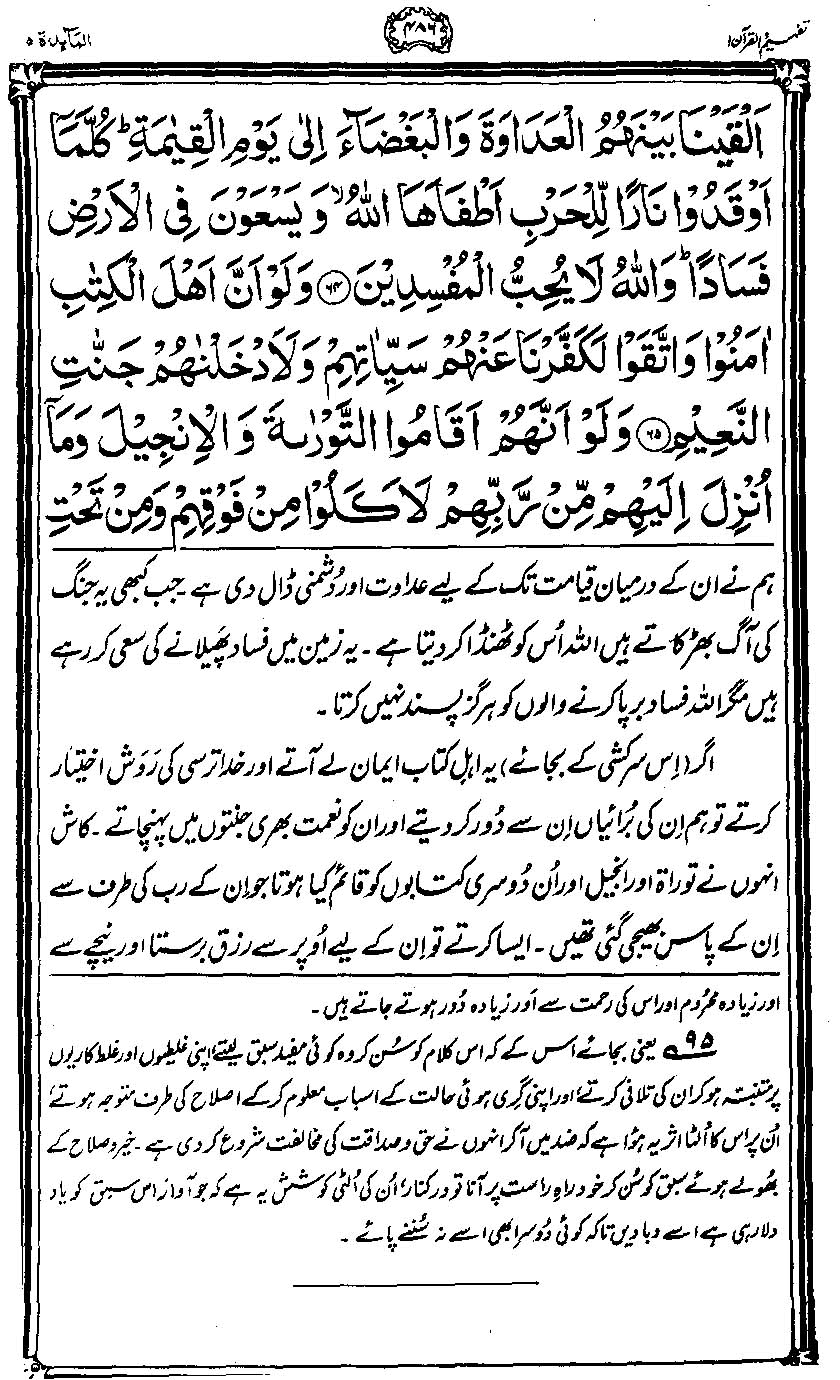 تفہیم القرآن ۱
۴۸۶
المآئدۃ ۵
اَلْقَيْنَا بَيْنَهُمُ الْعَدَاوَةَ وَالْبَغْضَآءَ اِلٰى يَوْمِ الْقِيٰمَةِ ؕ كُلَّمَآ
اَوْقَدُوْا نَارًا لِّلْحَرْبِ اَطْفَاَهَا اللّٰهُ ۙ وَيَسْعَوْنَ فِى الْاَرْضِ
فَسَادًا ؕ وَاللّٰهُ لَا يُحِبُّ الْمُفْسِدِيْنَ ﴿۶۴﴾ وَلَوْ اَنَّ اَهْلَ الْكِتٰبِ
اٰمَنُوْا وَاتَّقَوْا لَكَفَّرْنَا عَنْهُمْ سَيِّاٰتِهِمْ وَلَاَدْخَلْنٰهُمْ جَنّٰتِ
النَّعِيْمِ ﴿۶۵﴾ وَلَوْ اَنَّهُمْ اَقَامُوا التَّوْرٰىةَ وَالْاِنْجِيْلَ وَمَآ
اُنْزِلَ اِلَيْهِمْ مِّنْ رَّبِّهِمْ لَاَكَلُوْا مِنْ فَوْقِهِمْ وَمِنْ تَحْتِ
ہم نے ان کے درمیان قیامت تک کے لیے عداوت اور دُشمنی ڈال دی ہے۔ جب کبھی یہ جنگ
کی آگ بھڑکاتے ہیں اللہ اُس کو ٹھنڈا کر دیتا ہے۔ یہ زمین میں فساد پھیلانے کی سعی کر رہے
ہیں مگر اللہ فساد برپا کرنے والوں کو ہرگز پسند نہیں کرتا۔
اگر (اِس سرکشی کے بجائے) یہ اہلِ کتاب ایمان لے آتے اور خدا ترسی کی رَوَش اختیار
کرتے تو ہم اِن کی بُرائیاں اِن سے دُور کر دیتے اور ان کو نعمت بھری جنتوں میں پہنچاتے۔ کاش
انہوں نے توراۃ اور انجیل اور اُن دُوسری کتابوں کو قائم کیا ہوتا جو اِن کے رب کی طرف سے
اِن کے پاس بھیجی گئی تھیں۔ ایسا کرتے تو اِن کے لیے اُوپر سے رزق برستا اور نیچے سے
اور زیادہ محرُوم اور اس کی رحمت سے اَور زیادہ دُور ہوتے جاتے ہیں۔
۹۵ یعنی بجائے اس کے کہ اس کلام کو سُن کر وہ کوئی مفید سبق لیتے، اپنی غلیطیوں اور غلط کاریوں
پر متنبّہ ہو کر ان کی تلافی کرتے، اور اپنی گری ہوئی حالت کے اسباب معلوم کر کے اصلاح کی طرف متوجہ ہوتے،
اُن پر اس کا اُلٹا اثر یہ ہوا ہے کہ ضد میں آکر انہوں نے حق و صداقت کی مخالفت شروع کر دی ہے۔ خیر و صلاح کے
بھُولے ہوئے سبق کو سُن کر خود راہِ راست پر آنا تو درکنار، اُن کی اُلٹی کوشش یہ ہے کہ جو آواز اس سبق کو یاد
دلا رہی ہے اسے دبا دیں تاکہ کوئی دُوسرا بھی اسے نہ سُننے پائے۔